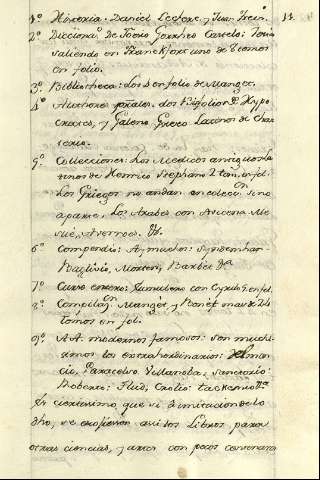 1º Historia. Daniel Leclerc, y Juan Frein. 11
2º Diccionario. De Toedo Gorrheo Castelo: Todo
saliendo en Francfort uno de tomos
en folio.
3º Bibliotheca: los 4 en folio de Manget.
4º Authores grales. dos en folio De Hypo
crates, y Galeno Greco Latinos de Char
terio.
5º Collecciones: Los Medicos antiguos La
tinos de Henrrico Stephano 2 tom. en fol.
Los Griegos no andan en coleccion sino
aparte, Los Arabes con Avicena Me
sue, Averroes. &c.
6º Compendio: Ay muchos: Sydenham
Baglivio, Morton, Barbet &a
7º Curso entero: Junckero con Cyrulo 5 en fol.
8º Compilacion Manget y Bonet mas de 24
tomos en fol.
9º AA. modernos famosos: son muchi-
simos los extrahordinarios: Helmon
cio, Paracelso Villanoba, Sennertio:
Roberto: Flud, Crolio: tackenio &a
Es ciertissimo, que si à imitacion de lo
dho, se escojiessen assi los Libros para
otras ciencias, y artes con pocos centenares